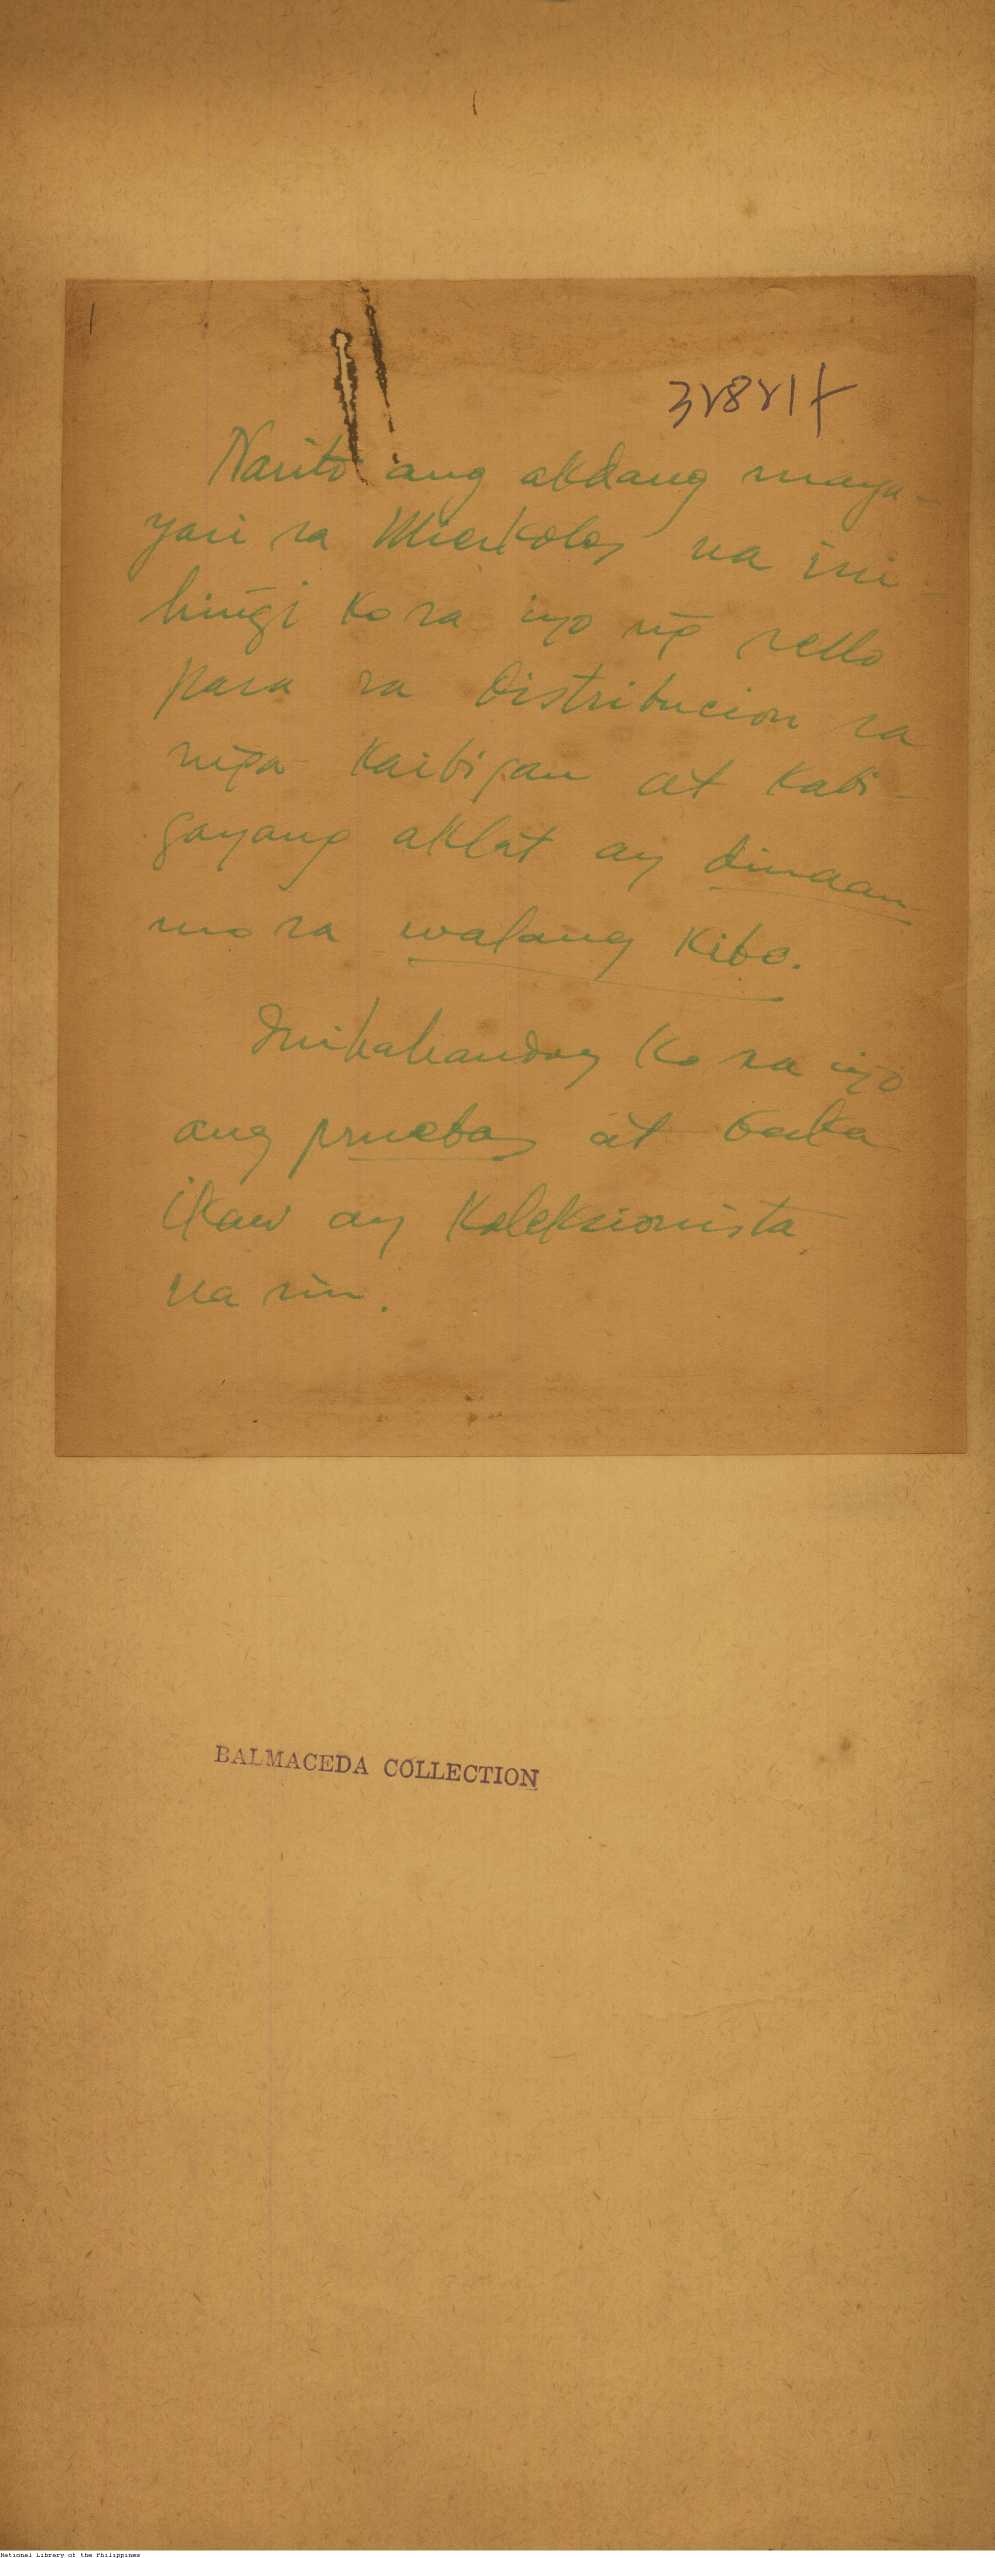 Narito ang akdang maya-
yari sa Mierkoles na ini-
hingi ko sa iyo ng̃ sello
para sa Distribucion sa
mg̃a kaibigan at kabi-
gayang aklat ay dinaan
mo sa walang kibo.
Inihahandog ko sa iyo
ang pruebas at baka
ikaw ay Koleksionista
na rin.
BALMACEDA COLLECTION
National Library of the Philippines